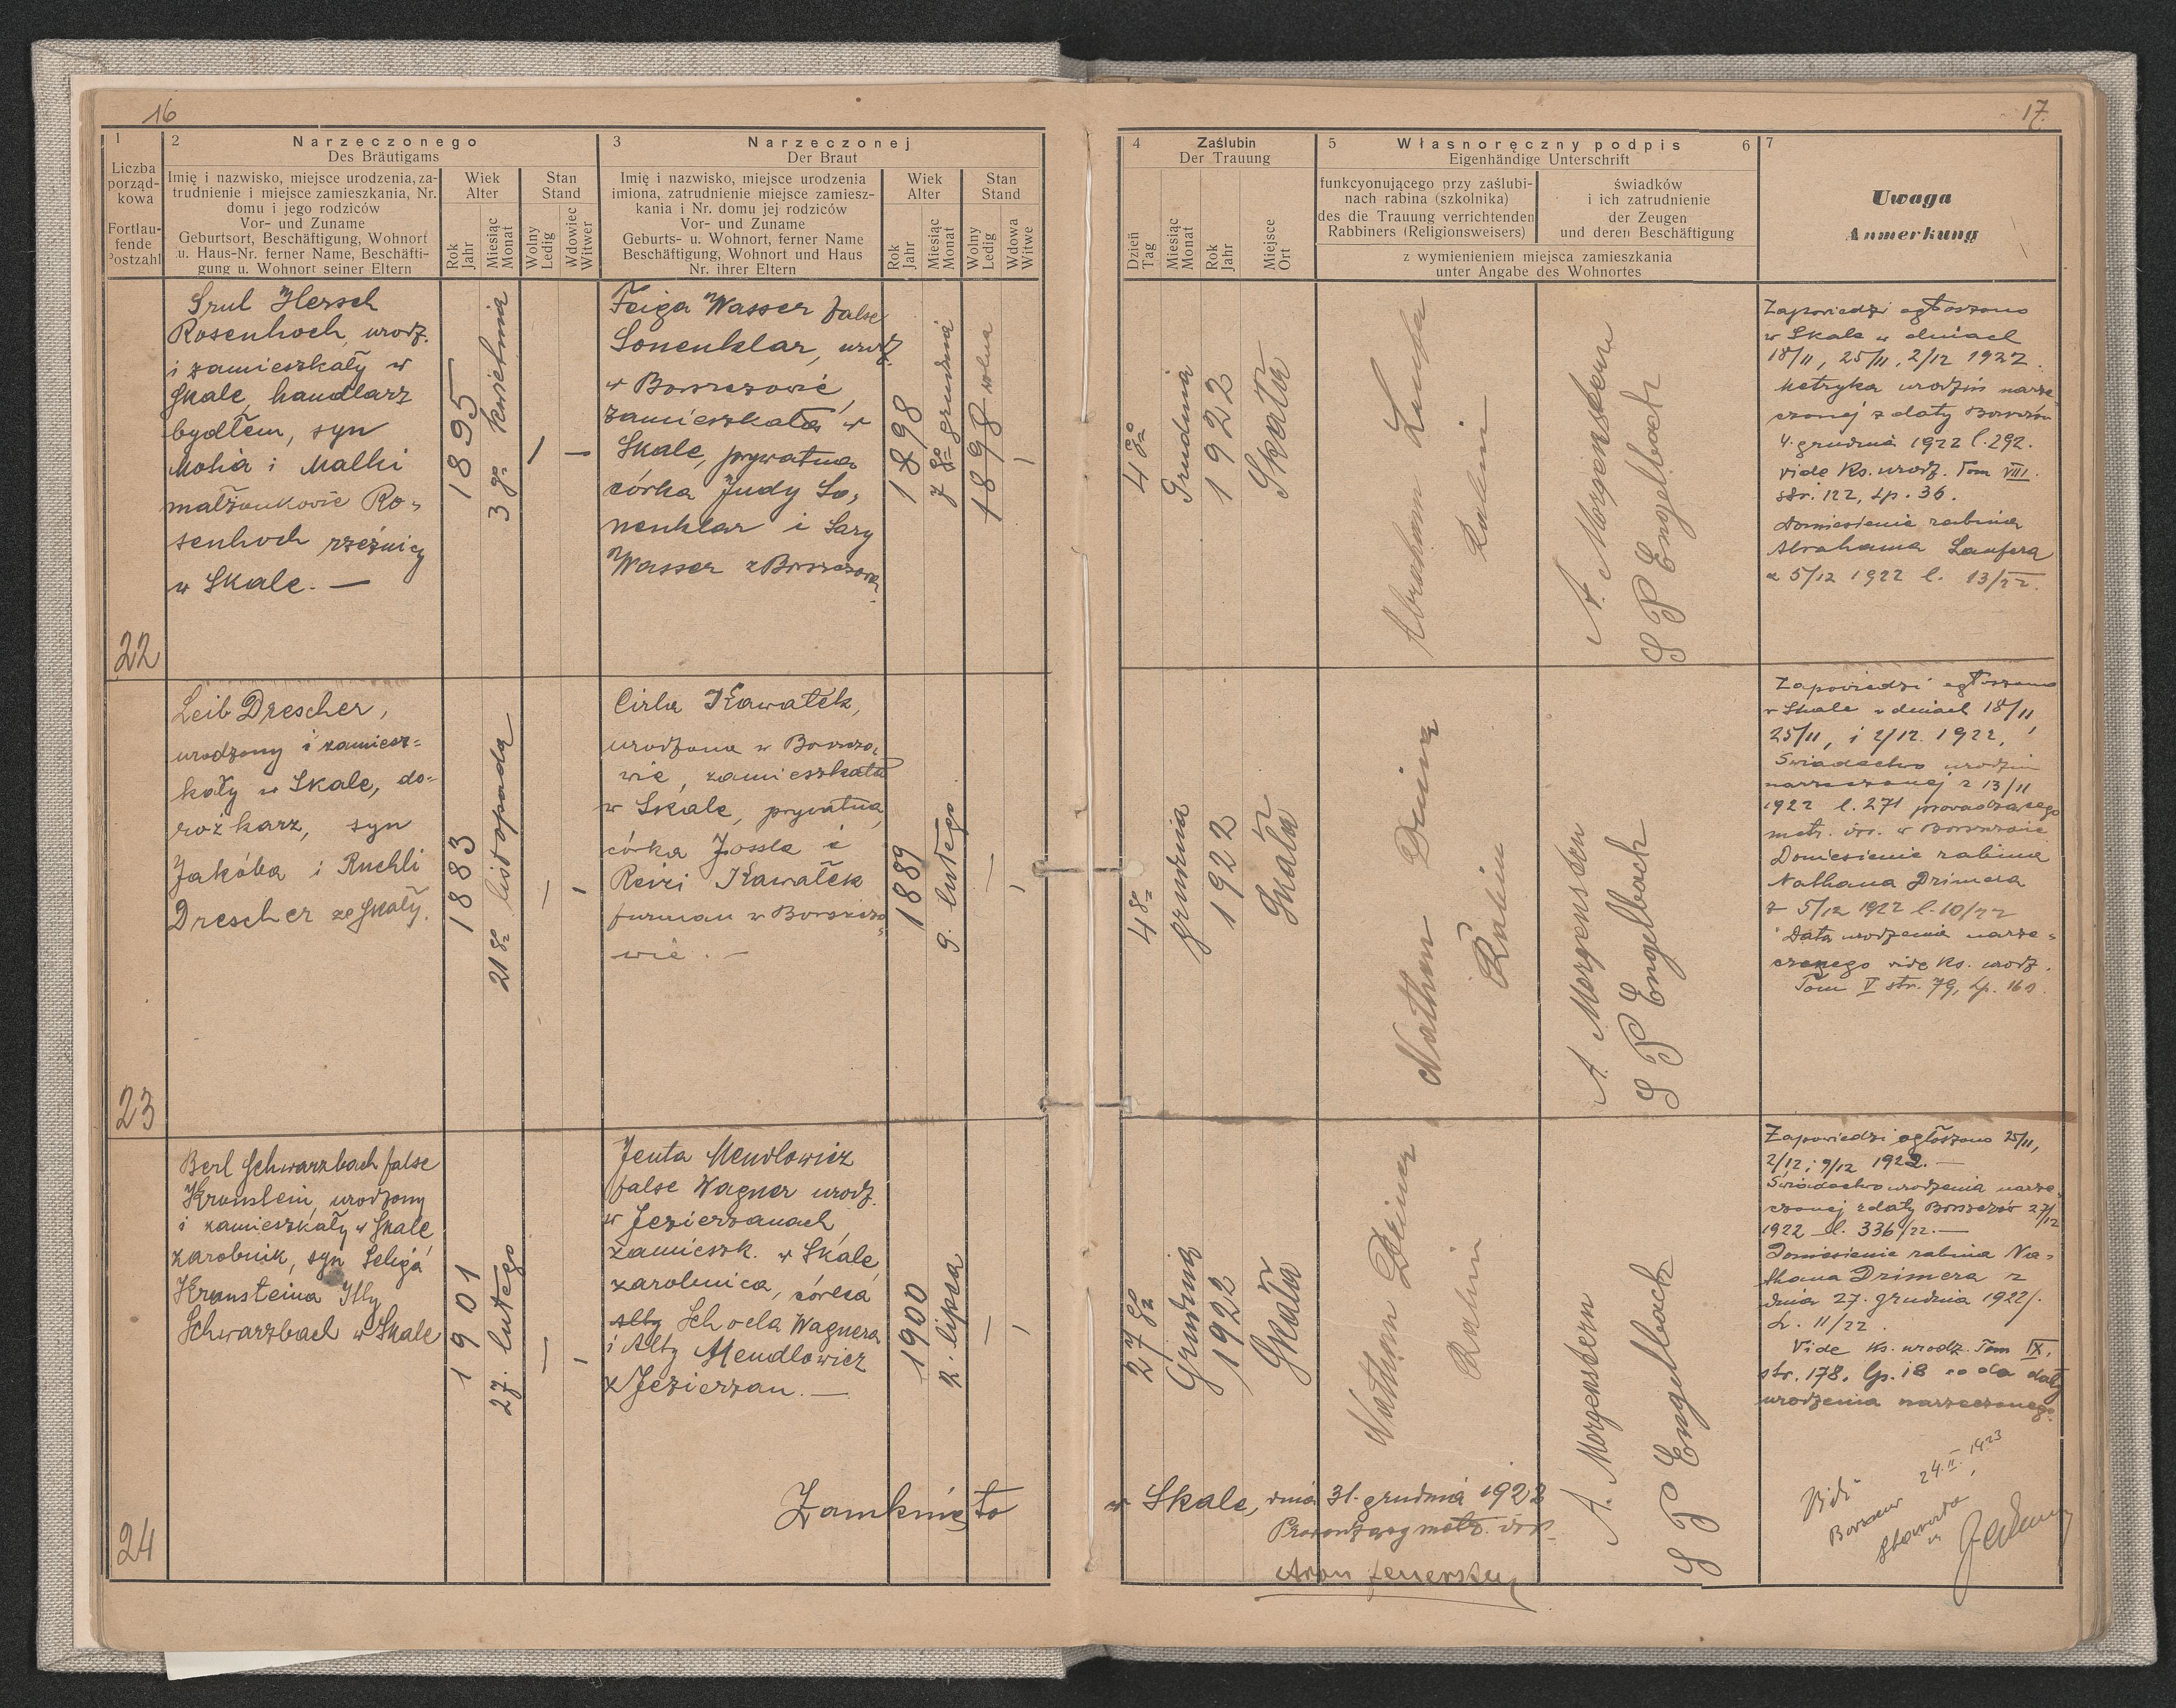 16
1
Liczba
porząd-
kowa
Fortlau-
fende
Postzahl
2 Narzeczonego
Des Bräutigams
Imię i nazwisko, miejsce urodzenia, za-
trudnienie i miejsce zamieszkania, Nr.
domu i jego rodziców
Vor- und Zuname
Geburtsort, Beschäftigung, Wohnort
u. Haus-Nr. ferner Name, Beschäfti-
gung u. Wohnort seiner Eltern
Wiek
Alter
Rok
Jahr
Miesiąc
Monat
Stan
Stand
Wolny
Ledig
Wdowiec
Witwer
3 Narzeczonej
Der Braut
Imię i nazwisko, miejsce urodzenia
imiona, zatrudnienie miejsce zamiesz-
kania i Nr. domu jej rodziców
Vor- und Zuname
Geburts- u. Wohnort, ferner Name
Beschäftigung, Wohnort und Haus
Nr. ihrer Eltern
Wiek
Alter
Rok
Jahr
Miesiąc
Monat
Stan
Stand
Wolny
Ledig
Wdowa
Witwe
22
Srul Hersch
Rosenhoch, urodz.
i zamieszkały w
Skale, handlarz
bydłem, syn
Mohia i Malki
małżonkowie Ro-
senhoch rzeźnicy
w Skale. —
1895
3go kwietnia
Feiga Wasser false
Sonenklar, urodz.
w Borszczowie,
zamieszkała w
Skale, prywatna
córka Judy So-
nenklar i Sary
Wasser z Borszczowa
1898
7go grudnia
1898 wolna
23
Leib Drescher,
urodzony i zamiesz-
kały w Skale, do-
rożkarz, syn
Jakóba i Ruchli
Drescher ze Skały.
1883
21go listopada
Cirla Kawałek,
urodzona w Borszczo-
wie, zamieszkała
w Skale, prywatna,
córka Jossla i
Reizi Kawałek
furman w Borszczo-
wie. —
1889
9. lutego
24
Berl Schwarzbach false
Kronstein, urodzony
i zamieszkały w Skale
zarobnik, syn Seliga
Kronsteina
Schwarzbach w Skale
1901
27. lutego
Jenta Mendlowicz
false Wagner urodz.
w Jezierzanach
zamieszk. w Skale,
zarobnica, córka
Wagnera
i Alty Mendlowicz
z Jezierzan. —
1900
2. lipca
Zamknięto
17.
4 Zaślubin
Der Trauung
Dzień
Tag
Miesiąc
Monat
Rok
Jahr
Miejsce
Ort
5 Własnoręczny podpis 6
Eigenhändige Unterschrift
funkcyonującego przy zaślubi-
nach rabina (szkolnika)
des die Trauung verrichtenden
Rabbiners (Religionsweisers)
świadków
i ich zatrudnienie
der Zeugen
und deren Beschäftigung
z wymienieniem miejsca zamieszkania
unter Angabe des Wohnortes
7
Uwaga
Anmerkung
4go
Grudnia
1922
Skała
Abraham
Rabin
A. Morgenstern
S P Engelbach
Zapowiedzi ogłoszono
w Skale w dniach
18/11, 25/11, 2/12 1922
Metryka urodzin narze-
czonej z daty Borszczów
4. grudnia 1922 l. 292.
vide Ks. urodz. Tom VIII.
str. 122, Lp. 36.
Doniesienie rabina
Abrahama Laufera
z 5/12 1922 l. 13/22.
4go
grudnia
1922
Skała
Nathan
Rabin
A. Morgenstern
S P Engelbach
Zapowiedzi ogłoszono
w Skale w dniach 18/11
25/11, i 2/12. 1922,
Świadectwo urodzin
narzeczonej z 13/11
1922 l. 271 prowadzącego
metr. izr. w Borszczowie
Doniesienie rabina
Nathana Drimera
z 5/12 1922 l. 10/22
Data urodzenia narze-
czonego vide Ks. urodz.
Tom V str. 79, Lp. 160.
27go
Grudnia
1922
Skała
Nathan
Rabin
A. Morgenstern
S P Engelbach
Zapowiedzi ogłoszono 25/11,
2/12 i 9/12 1922. —
Świadectwo urodzenia narze-
czonej z daty Borszczów 27/12
1922 l. 336/22. —
Doniesienie rabina Na-
thana Drimera z
dnia 27. grudnia 1922.
L. 11/22.
Vide Ks. urodz. Tom IX.
str. 178, Lp. 18 co do daty
urodzenia narzeczonego.
w Skale, dnia 31. grudnia 1922
Prowadzący metr. izr.
Aron
24.II.1923
Starosta